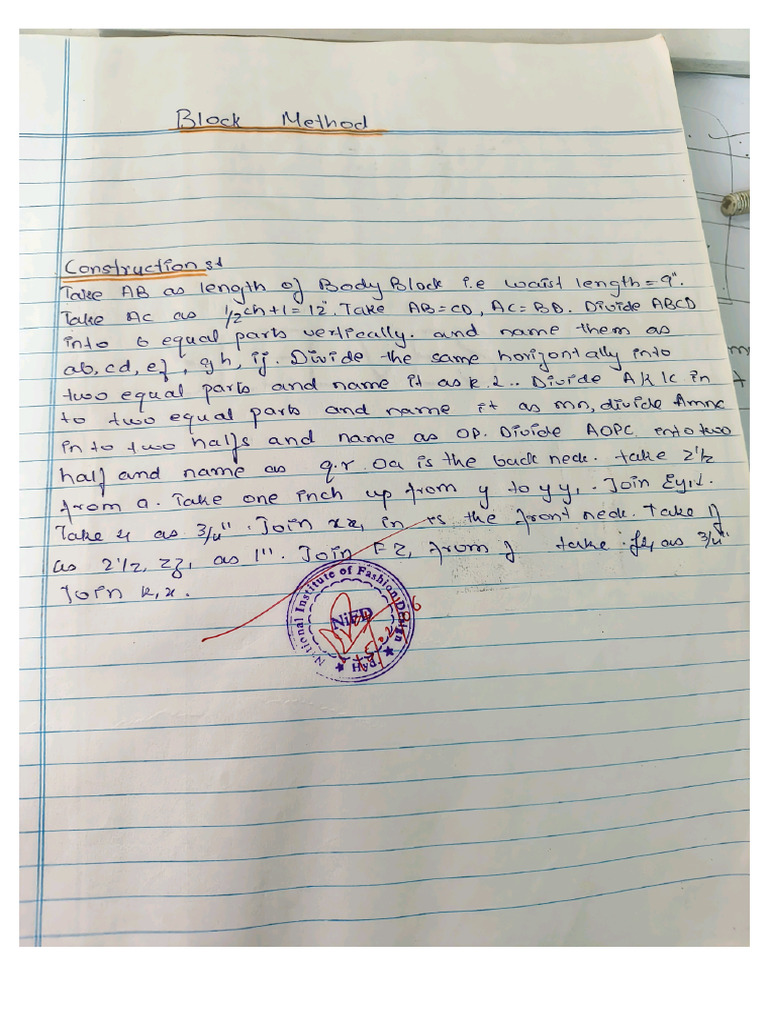 Block Method
Construction st
Take AB as length of Body Block i.e waist length = 9".
Take AC as 1/2 ch + 1 = 12". Take AB = CD, AC = BD. Divide ABCD
into 6 equal parts vertically. and name them as
ab, cd, ef, gh, ij. Divide the same horizontally into
two equal parts and name it as k. l.. Divide A k l c in
to two equal parts and name it as mn, divide Amnc
in to two halfs and name as OP. Divide AOPC into two
half and name as q.r. Oa is the back neck. take 2 1/2
from a. Take one inch up from y to yy,. Join Ey,
Take as 3/4". Join xx, in rs the front neck. Take
as 2 1/2, zz, as 1". Join FZ, from f take as 3/4"
Join k,x.
National Institute of Fashion Design
NiFD